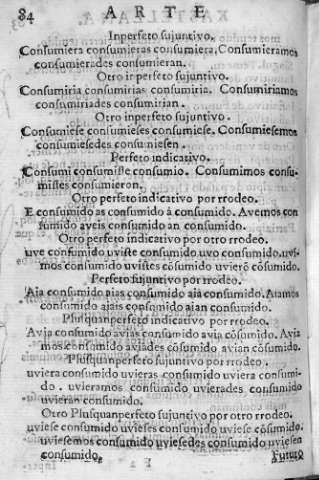 84 ARTE
Inperfeto sujuntivo.
Consumiera consumieras consumiera, Consumieramos
consumierades consumieran.
Otro inperfeto sujuntivo.
Consumiria consumirias consumiria. Consumiriamos
consumiriades consumirian.
Otro inperfeto sujuntivo.
Consumiese consumieses consumiese. Consumiesemos
consumiesedes consumiesen.
Perfeto indicativo.
Consumi consumiste consumio. Consumimos consu-
mistes consumieron.
Otro perfeto indicativo por rrodeo.
E consumido as consumido à consumido. Avemos con
sumido aveis consumido an consumido.
Otro perfeto indicativo por otro rrodeo.
uve consumido uviste consumido uvo consumido. uvi-
mos consumido uvistes cõsumido uvierõ cõsumido.
Perfeto sujuntivo por rrodeo.
Aia consumido aias consumido aia consumido. Aiamos
consumido aiais consumido aian consumido.
Plusquanperfeto indicativo por rrodeo.
Avia consumido avias consumido avia cõsumido. Avia
mos consumido aviades cõsumido avian cõsumido.
Plusquanperfeto sujuntivo por rrodeo.
uviera consumido uvieras consumido uviera consumi-
do. uvieramos consumido uvierades consumido
uvieran consumido.
Otro Plusquanperfeto sujuntivo por otro rrodeo.
uviese consumido uvieses consumido uviese cõsumido.
uviesemos consumido uviesedes consumido uviesen
consumido.
Futuro